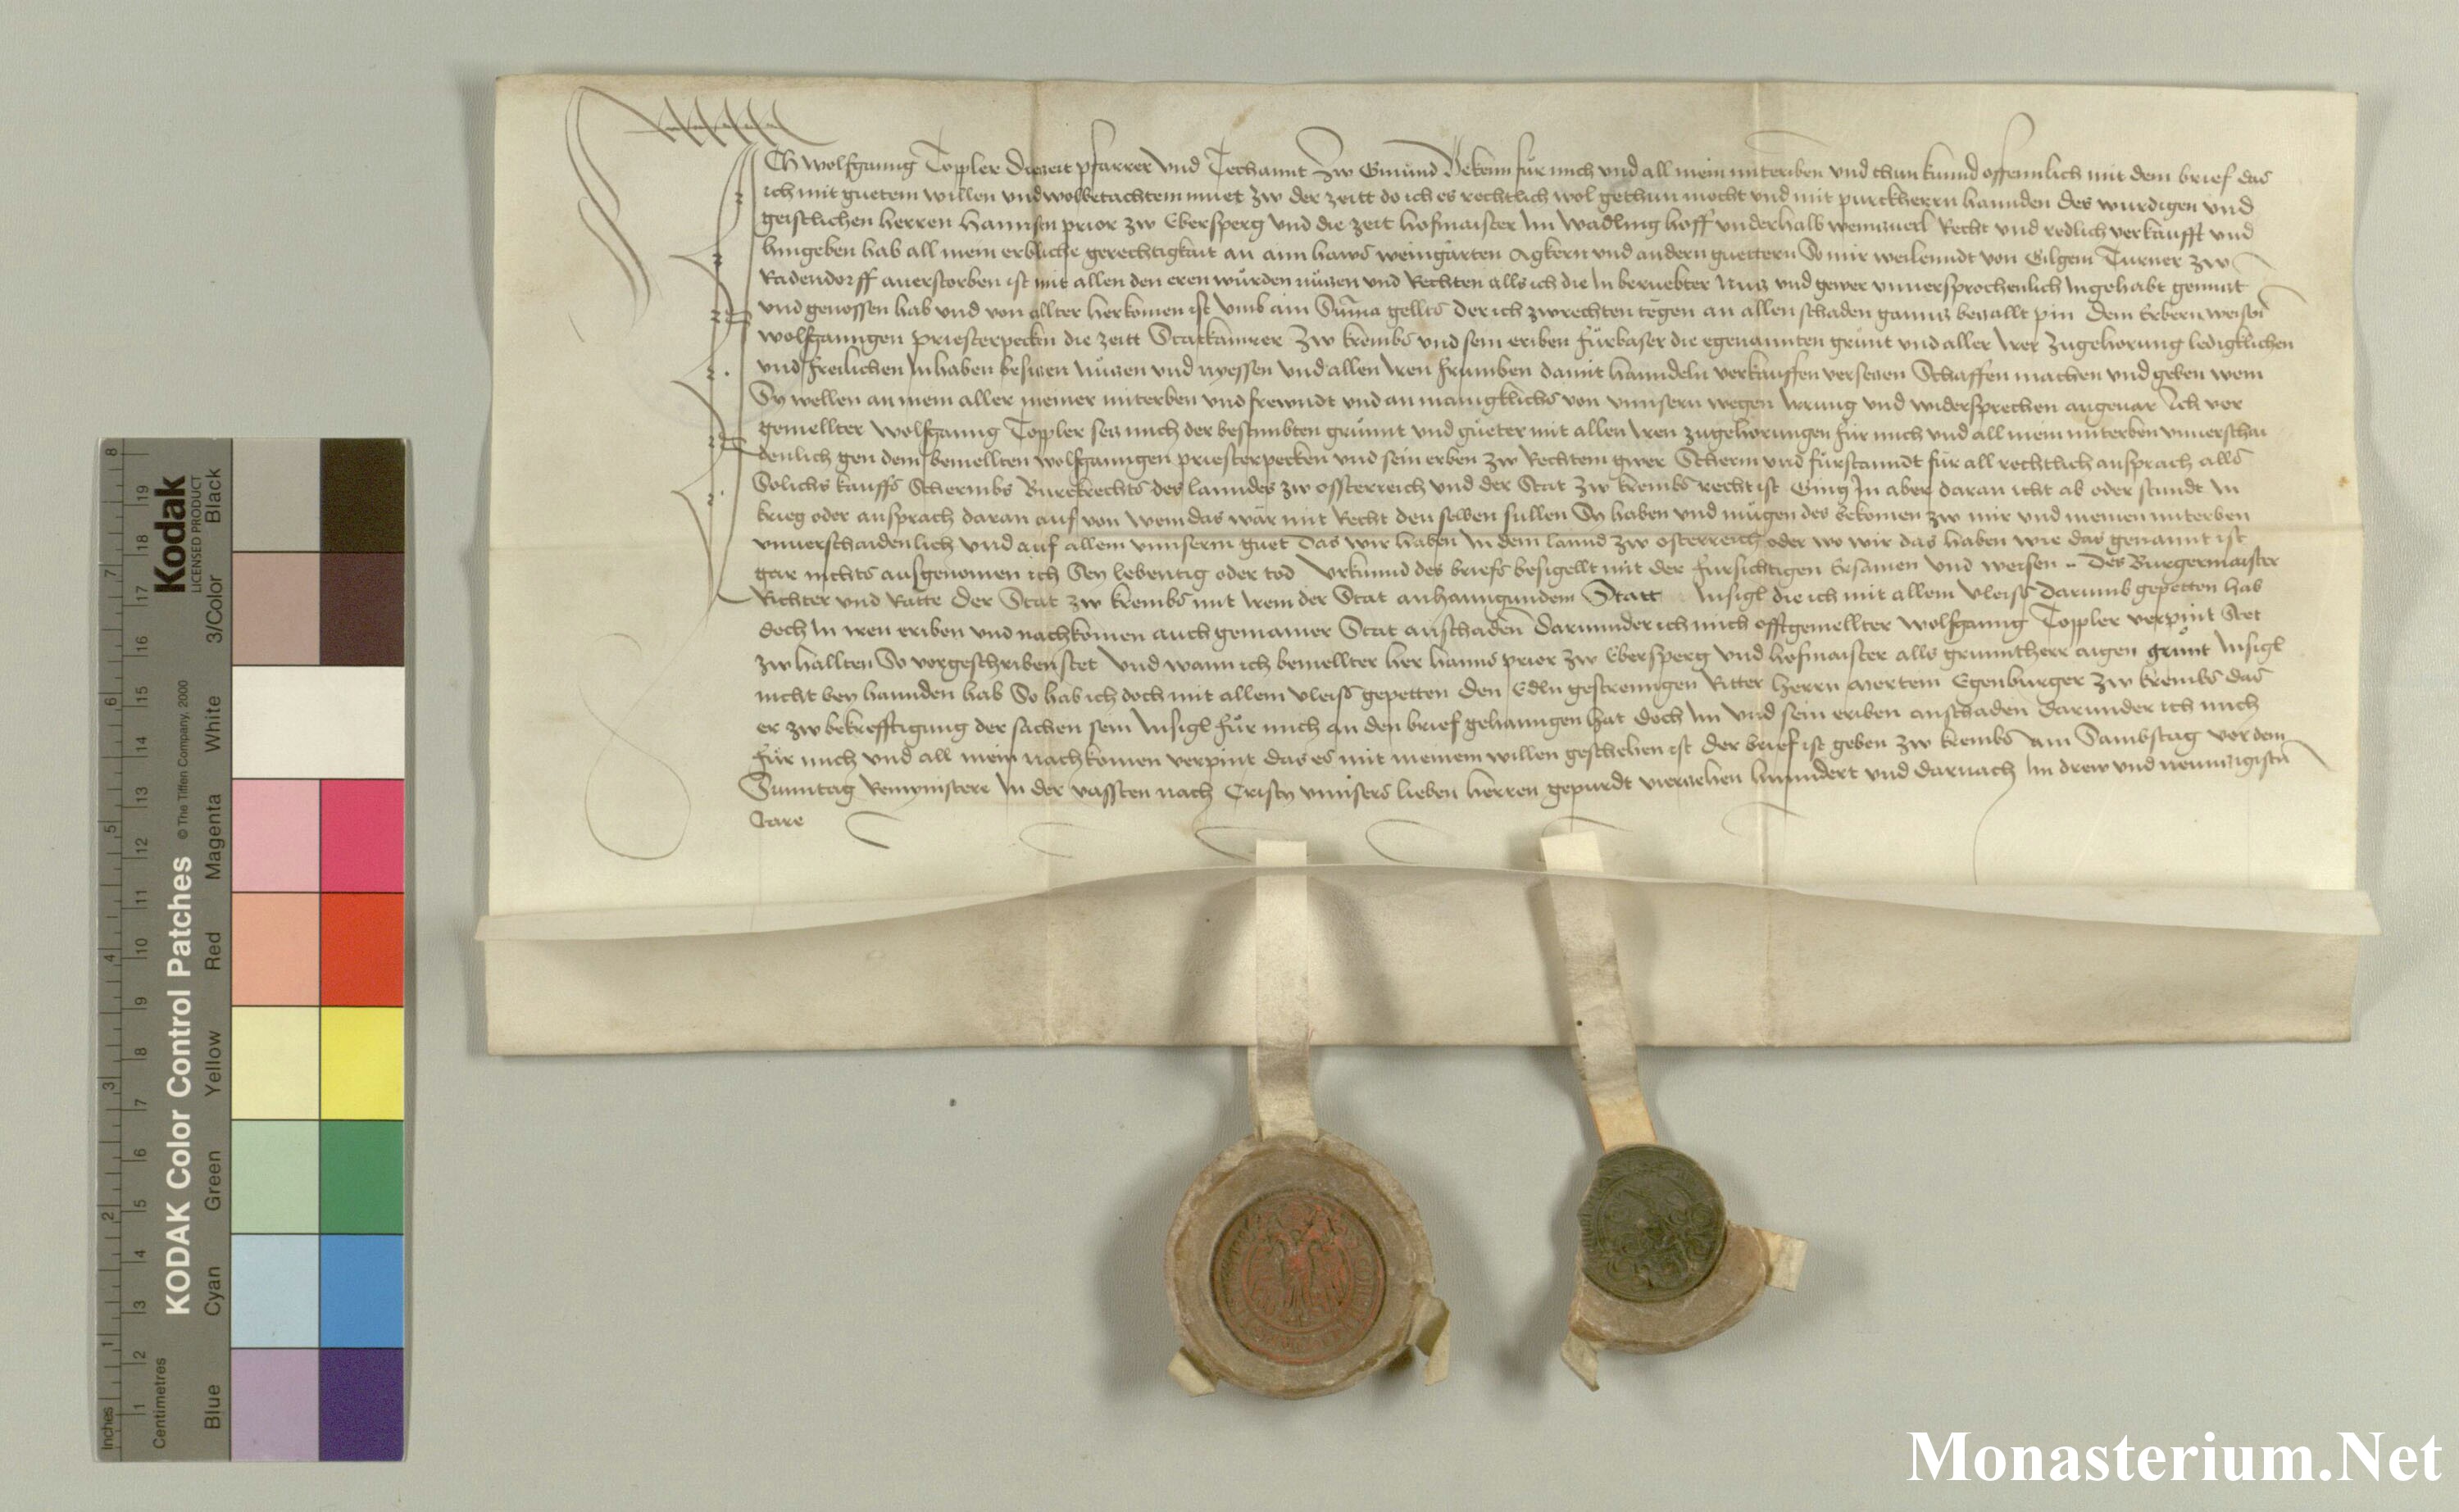 ICh wolfganng Toppler diezeit pfarrer vnd Techannt zw Gmünd Bekenn für mich vnd all mein miteriben vnd thun kunnd offennlich mit dem brief das
ich mit guetem willen vnd wolbetachtem muet zw der zeitt do ich es rechtlich wol gethun mocht vnd mit purckherrn hannden des wurdigen vnd
geistlichen herren hannsen prior zw Ebersperg vnd die zeit hofmaister Im Wadlinghoff vnderhalb weinzuerl Recht vnd redlich verkaufft vnd
hingeben hab all mein erbliche gerechtigkait an ainn haws weingärten Agkern vnd andern guettern So mir weilenndt von Gilgem Turner zw
Radendorff anerstorben ist mit allen den eren würden nüczen vnd Rechten alls ich die In beruebter Nucz vnd gewer vnuersprochenlich Ingehabt genuczt
vnd genossen hab vnd von allter herkomen ist vmb ain Suma gellts der ich zwrechten tegen an allen schaden ganncz beczallt pin dem Erbern weisen
wolfganngen priesterpecken die zeitt Statkamrer zw krembs vnd sein eriben fürbaser die egenannten grünt vnd aller Irer zugehorung ledigklichen
vnd freilichen Inhaben besiczen nüczen vnd nyessen vnd allen Iren frumben damit hanndeln verkauffen verseczen Schaffen machen vnd geben wem
Sy wellen an mein aller meiner miterben vnd frewndt vnd an manigklichs von vnnsern wegen Irrung vnd widersprechen angeuar Ich vor
gemellter wolfganng Toppler secz mich der bestimbten grünnt vnd güeter mit allen Iren zugehorungen für mich vnd all mein miterben vnuerschai
denlich gen dem bemellten wolfganngen priesterpecken vnd sein erben zw Rechtem gwer Scherm vnd fürstanndt für all rechtlich ansprach alls
Solichs kauffs Schermbs Burckrechts des lanndes zw ossterreich vnd der Stat zw krembs recht ist Ging In aber daran icht ab oder stundt In
krieg oder ansprach daran auf von wem das wär mit Recht denselben sullen Sy haben vnd mügen des bekomen zw mir vnd meinen miterben
vnuerschaidenlich vnd auf allem vnnserm guet das wir haben In dem lannd zw osterreich oder wo wir das haben wie das genannt ist
gar nichts ausgenomen ich Sey lebentig oder tod Vrkunnd des briefs besigellt mit der fursichtigen Ersamen vnd weisen Des Burgermaister
Richter vnd Ratte der Stat zw krembs mit Irem der Stat anhanngundem Statt Insigl die ich mit allem vleiss darumb gepetten hab
doch In Iren eriben vnd nachkomen auch gemainer Stat anschaden darunnder ich mich offtgemellter wolfganng Toppler verpint Stet
zw hallten So vorgeschriben stet Vnd wann ich bemellter her hanns prior zw Ebersperg vnd hofmaister alls grunntherr aigen grunt Insigl
nicht bey hannden hab So hab ich doch mit allem vleiss gepetten den Edln gestrenngen Ritter herrn Mertem Egenburger zw krembs das
er zw bekrefftigung der sachen sein Insigl für mich an den brief gehanngen hat doch Im vnd sein eriben anschaden darunder ich mich
für mich vnd all mein nachkomen verpint das es mit meinem willen geschehen ist Der brief ist geben zw krembs am Sambstag vor dem
Sunntag Remynistere In der vassten nach Cristy vnnsers lieben herren gepurdt vierczehen hunndert vnd darnach Im drew vnd newnczigisten
Iare
KODAK Color Control Patches
© The Tiffen Company, 2000
Kodak
LICENSED PRODUCT
Inches 1 2 3 4 5 6 7 8
Centimetres 1 2 3 4 5 6 7 8 9 10 11 12 13 14 15 16 17 18 19
Blue Cyan Green Yellow Red Magenta White 3/Color Black
Monasterium.Net